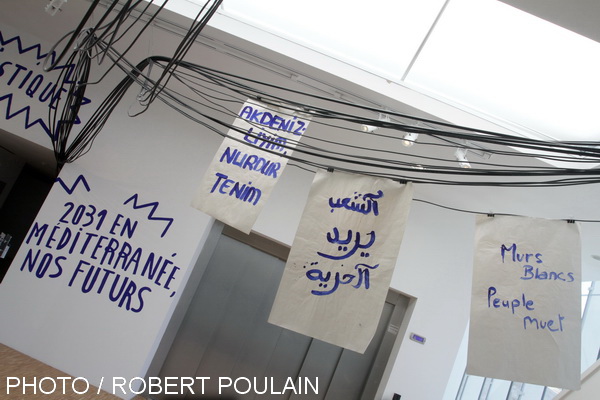 STIQUE
2031 EN
MÉDITERRANÉE,
NOS FUTURS
AKDENIZ-
LIYIM,
NURDUR
TENIM
الشعب
يريد
الحرية
Murs
Blancs
Peuple
Muet
PHOTO / ROBERT POULAIN